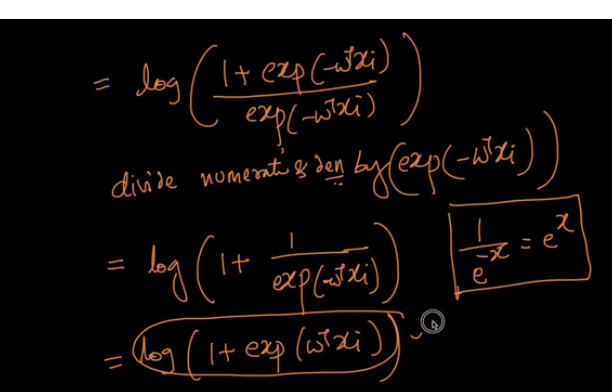 = log ( (1 + exp(-wᵀxi)) / exp(-wᵀxi) )
divide numerat & den by (exp(-wᵀxi))
= log ( 1 + 1 / exp(-wᵀxi) )
1 / e^-x = e^x
= log ( 1 + exp(wᵀxi) )